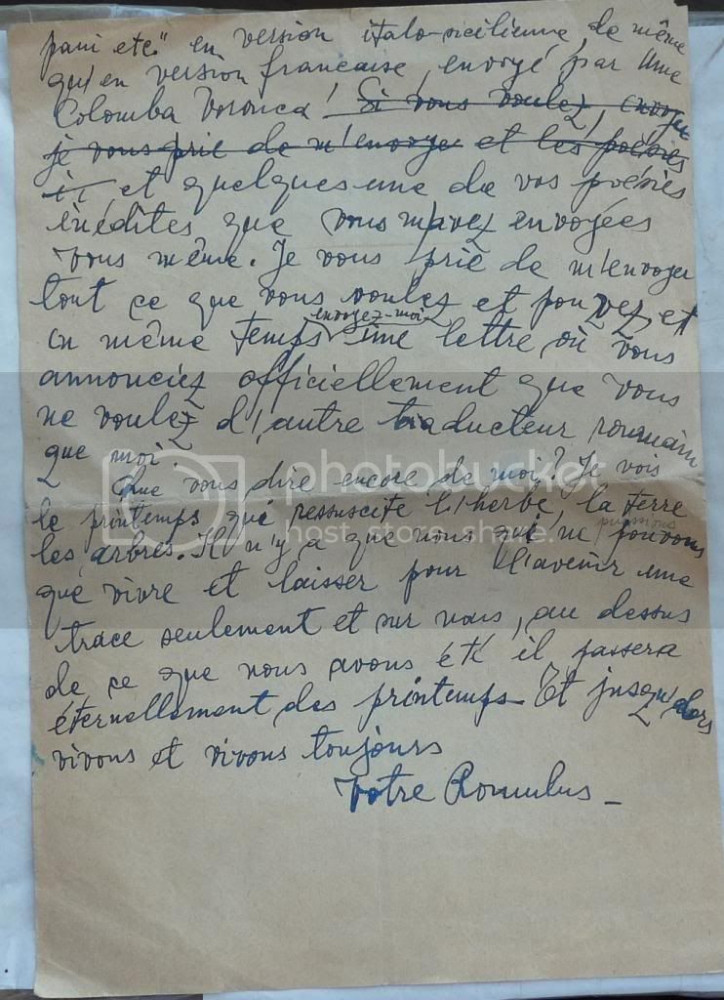 pani etc" en version italo-sicilienne, de même
qu'en version francaise, envoyé par Mme
Colomba Voronca! Si vous voulez, envoyer
je vous prie de m'envoyer et les poèsies
et quelques une de vos poésies
inédites que vous m'avez envoyées
vous même. Je vous prie de m'envoyer
tout ce que vous voulez et pouvez, et
envoyez-moi
en même temps une lettre, où vous
annonciez officiellement que vous
ne voulez d'autre traducteur roumain
que moi.
Que vous dire encore de moi? Je vois
le printemps qui ressuscite l'herbe, la terre
puissions
les arbres. Il n'y a que nous qui ne pouvons
que vivre et laisser pour l'avenir une
trace seulement et sur nous, au dessus
de ce que nous avons été il passera
éternellement des printemps. Et jusqu'alors
vivons et vivons toujours
Votre Romulus_
photobucket
host. store. share.